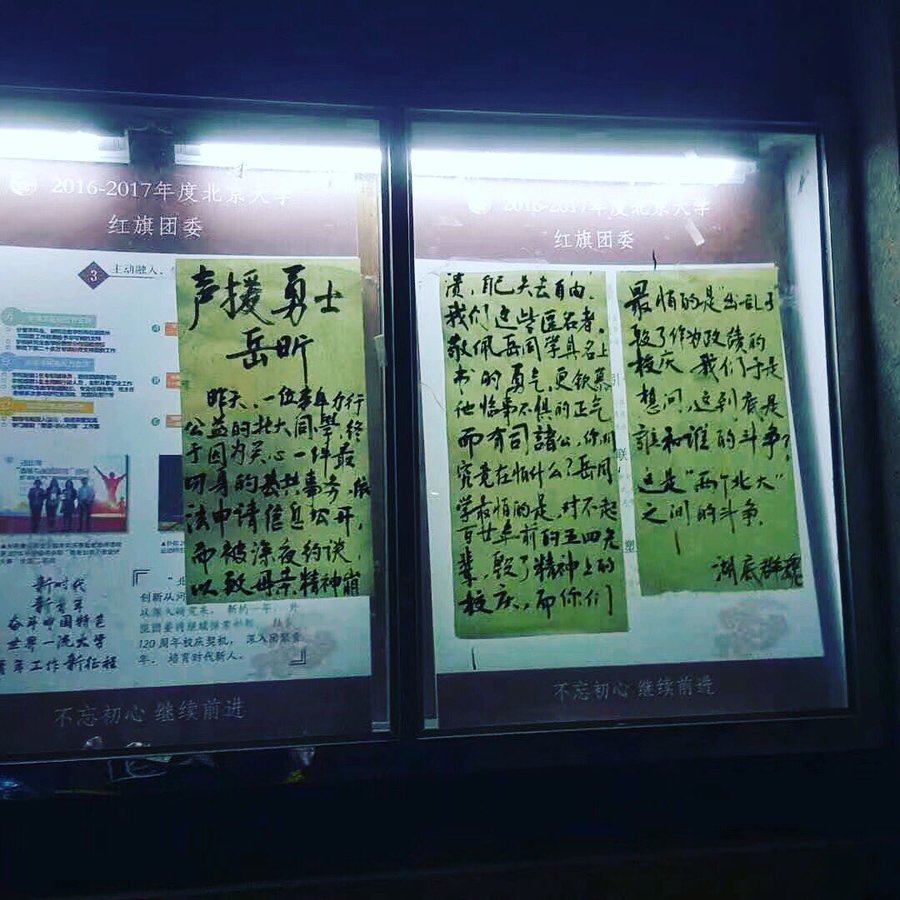 2016-2017年度北京大学
红旗团委
3 主动融入、
声援勇士
岳昕
昨天，一位多年力行
公益的北大同學，终
于因为关心一件最
切身的公共事务，依
法申请信息公开，
而被深夜约谈，
以致母亲精神崩
新时代
新青年
奋斗中国特色
世界一流大学
青年工作新征程
创新从
120周年校庆契机，深入团聚青
年，培育时代新人。
不忘初心 继续前进
2016-2017年度北京大学
红旗团委
溃，自己失去自由。
我们这些匿名者，
敬佩岳同学具名上
书的勇气，更钦慕
他临事不惧的正气
而有司諸公，你们
究竟在怕什么？岳同
学最怕的是，对不起
百廿年前的五四先
輩，毁了精神上的
校庆，而你们
最怕的是“出乱子”
毁了作为政绩的
校庆。我们于是
想问，这到底是
誰和谁的斗争？
这是“两个北大”
之间的斗争。
湖底群魂
不忘初心 继续前进